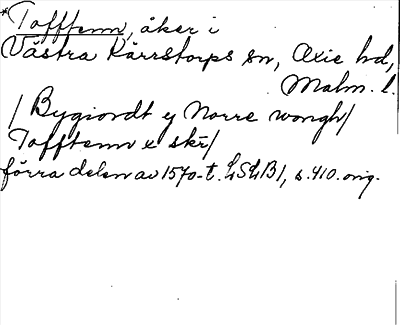 *Tofftenn, åker i
Västra Kärrstorps sn, Oxie hd,
Malm. l.
/Bygiordt ej Norre wongh/
Tofftenn x skr/
förra delen av 1570-t. LSLB1, s. 410. orig.